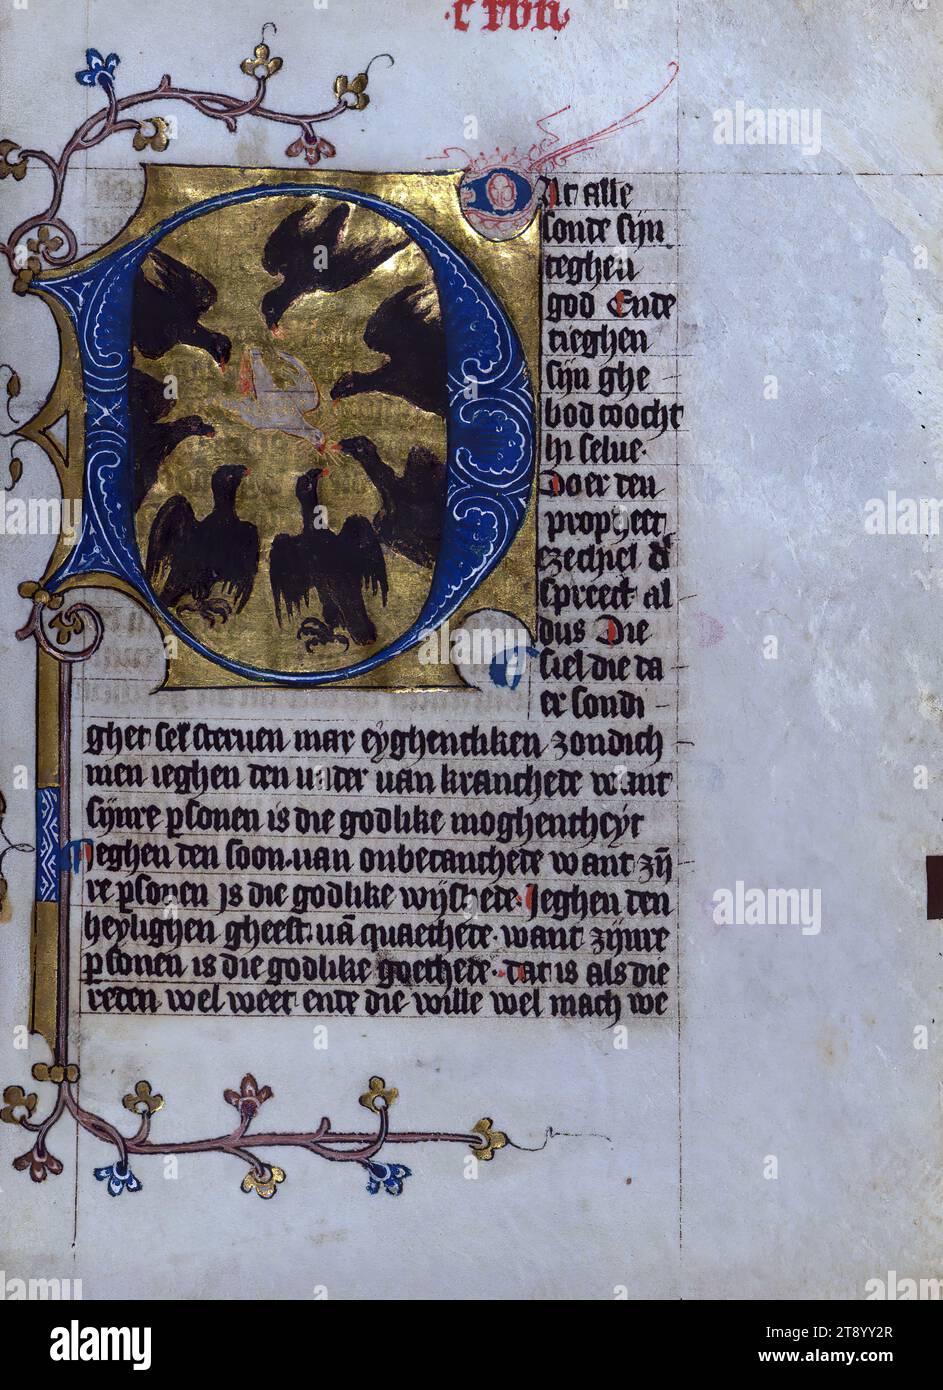 c xvii
Dat alle
sonde sijn
teghen
god Ende
tieghen
sijn ghe
bod wocht
in selue.
Doer den
propheet
ezechiel d
spreect al
dus Die
siel die da
er sondi
ghet sel steruen mar eyghentliken zondich
men ieghen den vader van kranchede want
sijnre psonen is die godlike moghentheyt
Ieghen den soon. van onbecanthede want zyn
re psonen is die godlike wijshede. Jeghen den
heylighen gheest. vā quaethede. want zijnre
psonen is die godlike goethede. dat is als die
reden wel weet ende die wille wel mach we
alamy
Image ID: 2T8YY2R
www.alamy.com